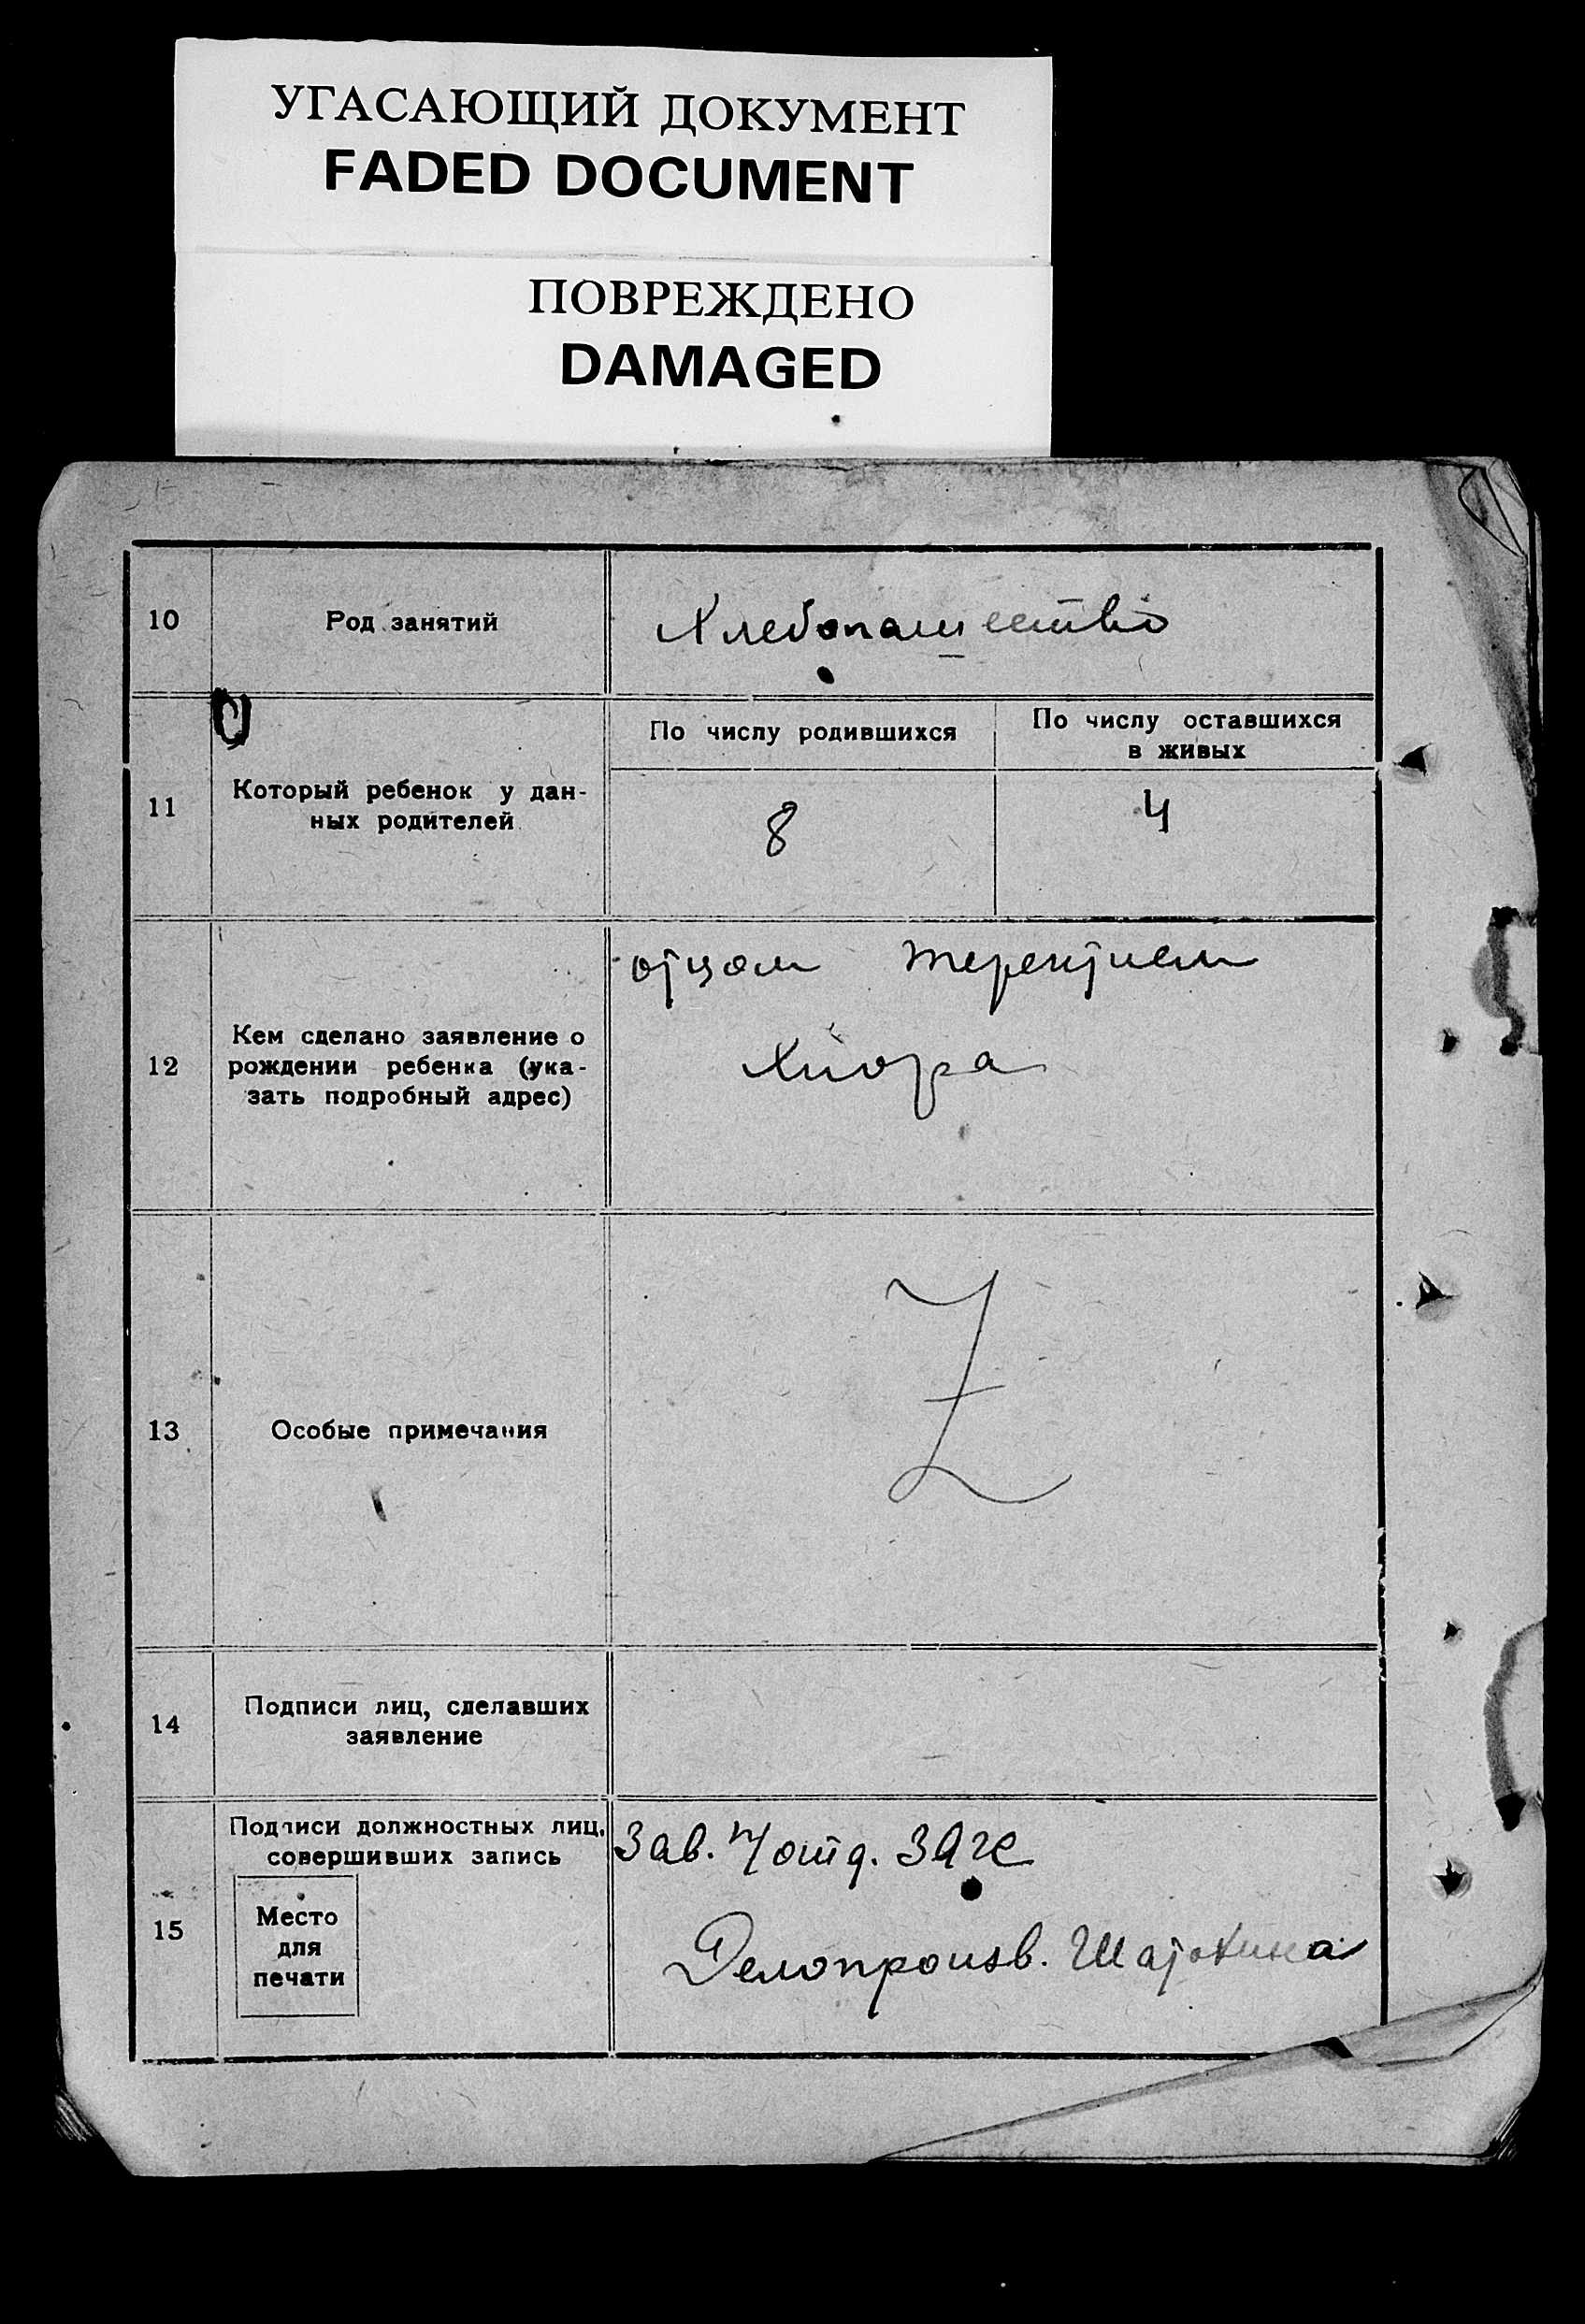 УГАСАЮЩИЙ ДОКУМЕНТ
FADED DOCUMENT
ПОВРЕЖДЕНО
DAMAGED
10 Род занятий Хлебопашество
11 Который ребенок у дан-
ных родителей
По числу родившихся
По числу оставшихся
в живых
8 4
12 Кем сделано заявление о
рождении ребенка (ука-
зать подробный адрес)
отцом Терентием
13 Особые примечания
Z
14 Подписи лиц, сделавших
заявление
15 Подписи должностных лиц,
совершивших запись
Место
для
печати
Зав. отд. Загс
Делопроизв.